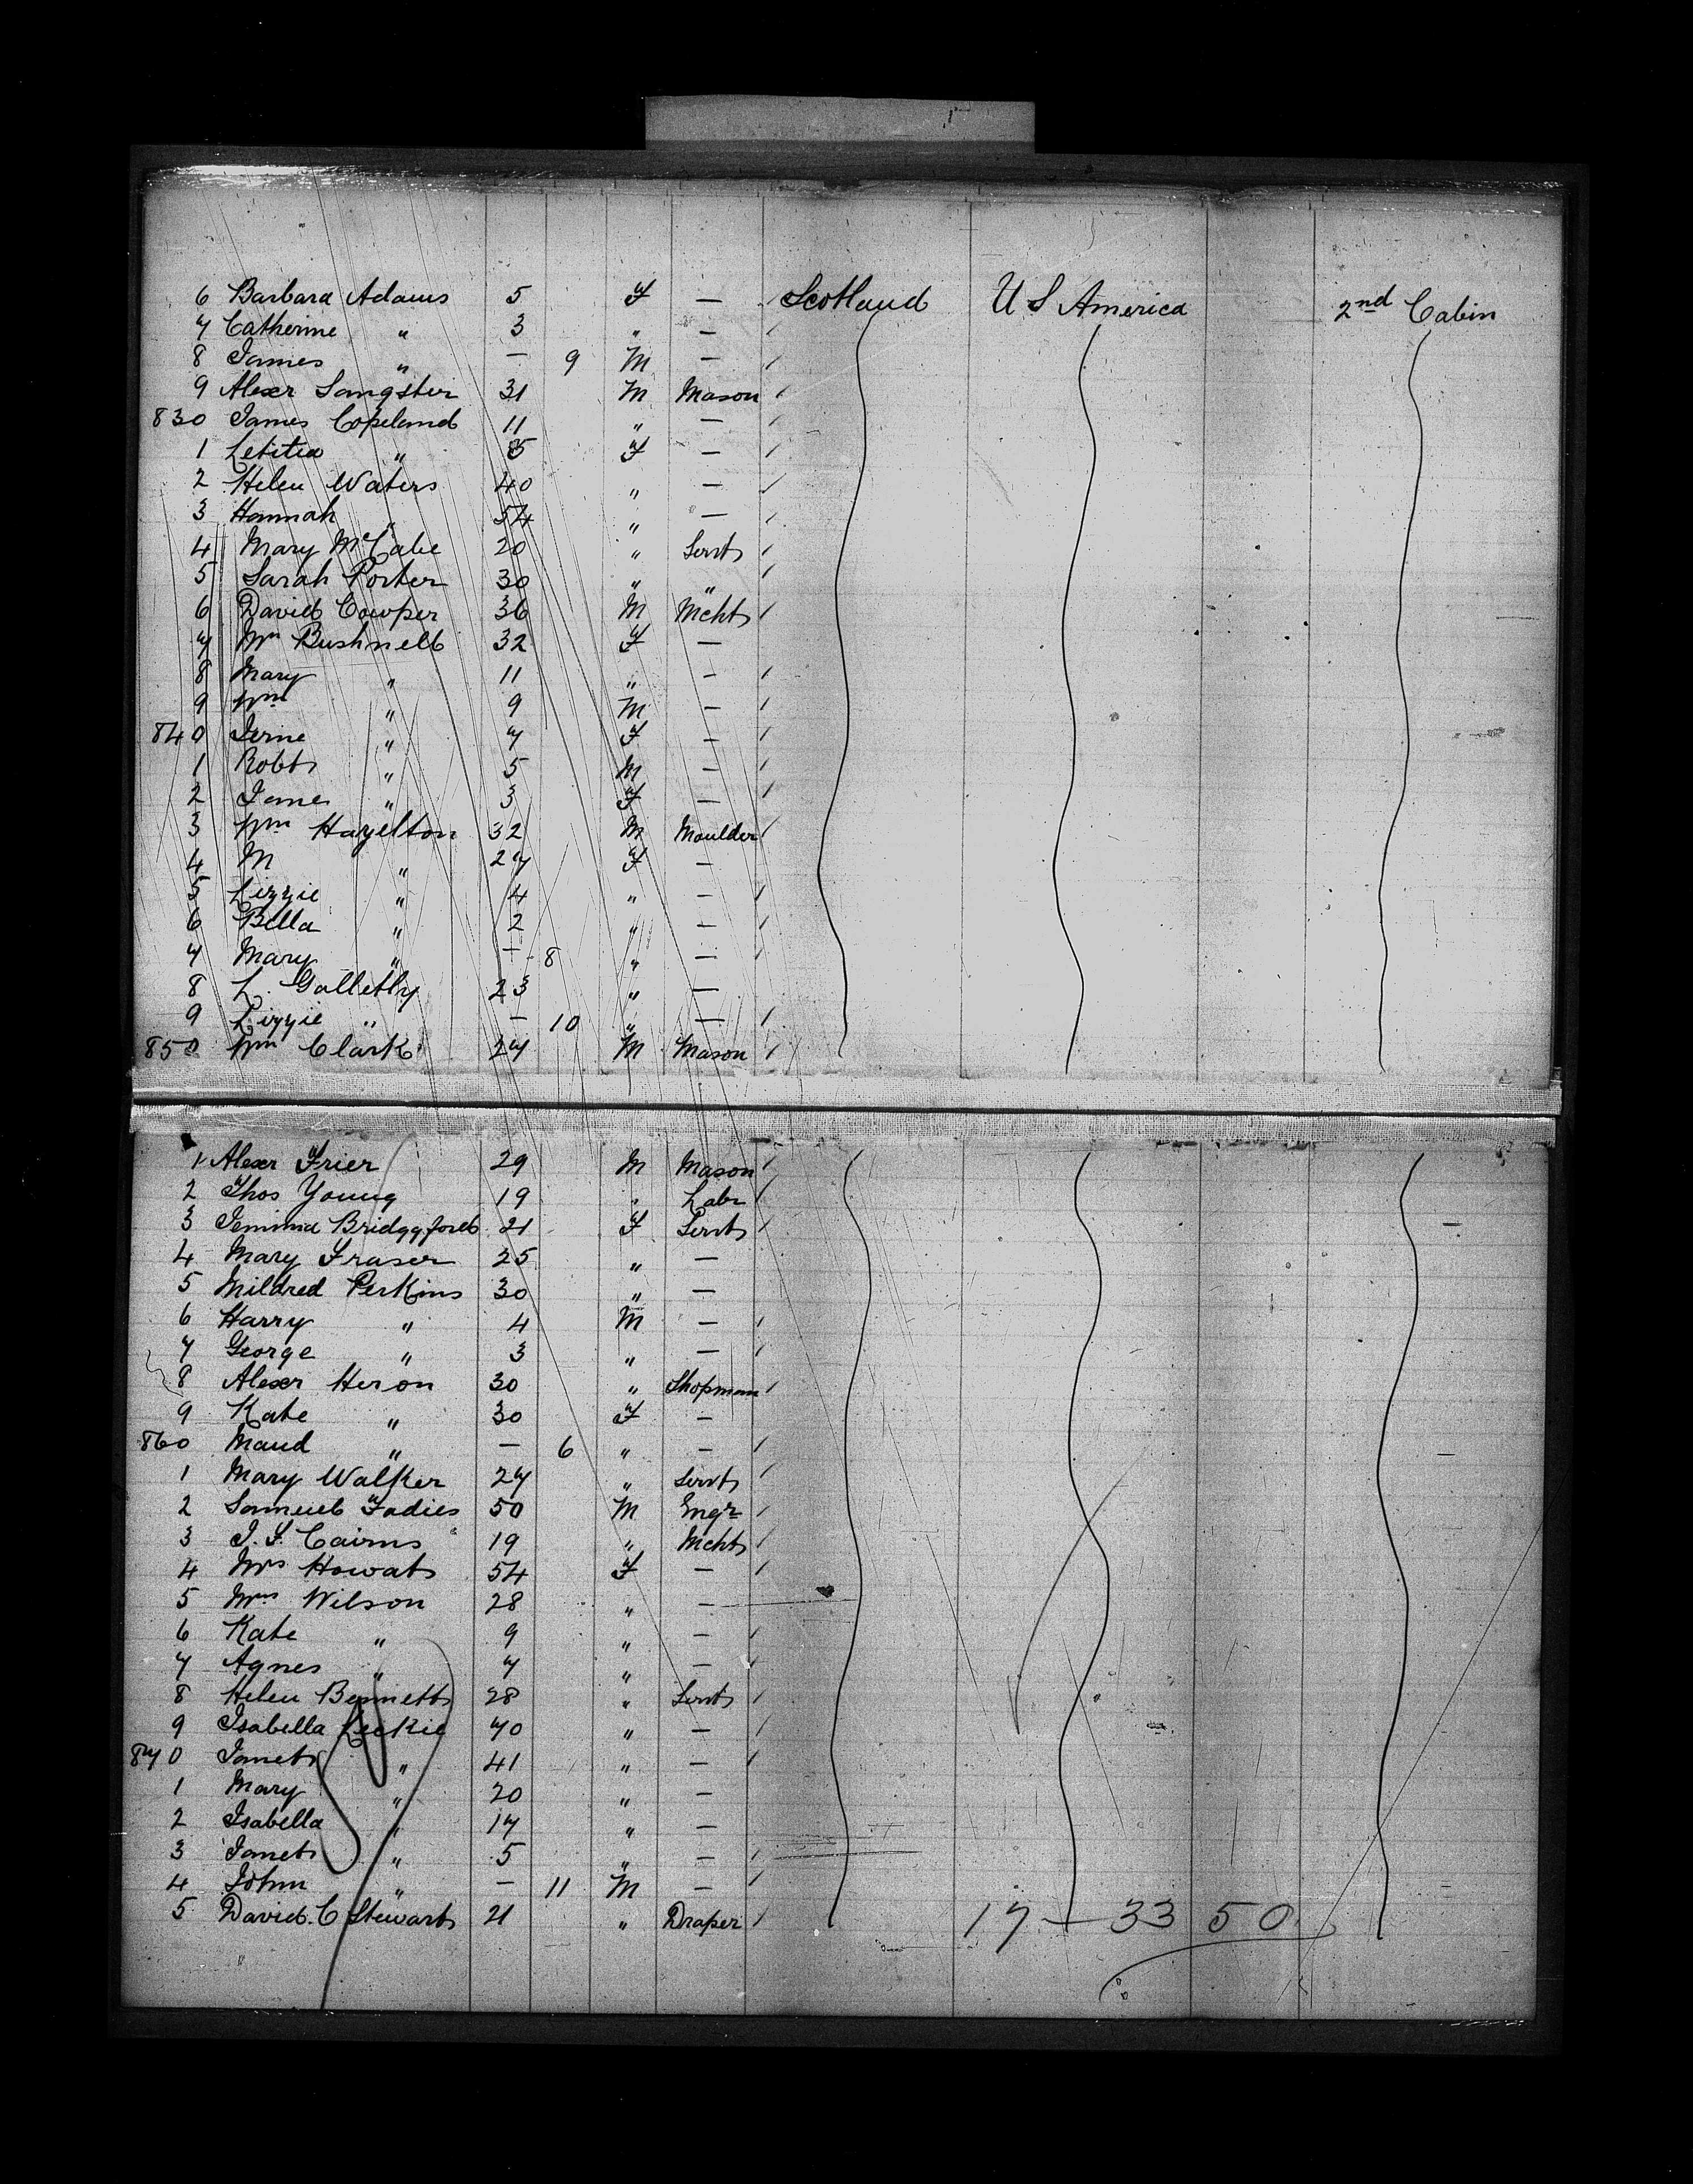 6 Barbara Adams 5 F — Scotland U S America 2nd Cabin
7 Catherine " 3 " —
8 James " — 9 M —
9 Alexr Sangster 31 M Mason
830 James Copeland 11 " —
1 Letitia " 5 F —
2 Helen Waters 40 " —
3 Hannah " 54 " —
4 Mary McCabe 20 " Servt
5 Sarah Porter 30 " "
6 David Cowper 36 M Mcht
7 Mrs Bushnell 32 F —
8 Mary " 11 " —
9 Wm " 9 M —
840 Ierne " 7 F —
1 Robt " 5 M —
2 James " 3 F —
3 Wm Hazelton 32 M Moulder
4 M " 27 F —
5 Lizzie " 4 " —
6 Bella " 2 " —
7 Mary " — 8 " —
8 L. Galletly 23 " —
9 Lizzie " — 10 " —
850 Wm Clark 27 M Mason
1 Alexr Frier 29 M Mason
2 Thos Young 19 " Labr
3 Jemima Bridggford 21 F Servt
4 Mary Fraser 25 " —
5 Mildred Perkins 30 " —
6 Harry " 4 M —
7 George " 3 " —
8 Alexr Heron 30 " Shopman
9 Kate " 30 F —
860 Maud " — 6 " —
1 Mary Walker 27 " Servt
2 Samuel Fadies 50 M Engr
3 J. F. Cairns 19 " Mcht
4 Mrs Howat 54 F —
5 Mrs Wilson 28 " —
6 Kate " 9 " —
7 Agnes " 7 " —
8 Helen Bennett 28 " Servt
9 Isabella Leckie 70 " —
870 Janet " 41 " —
1 Mary " 20 " —
2 Isabella " 17 " —
3 Janet " 5 " —
4 John " — 11 M —
5 David C Stewart 21 " Draper 17 — 33 50